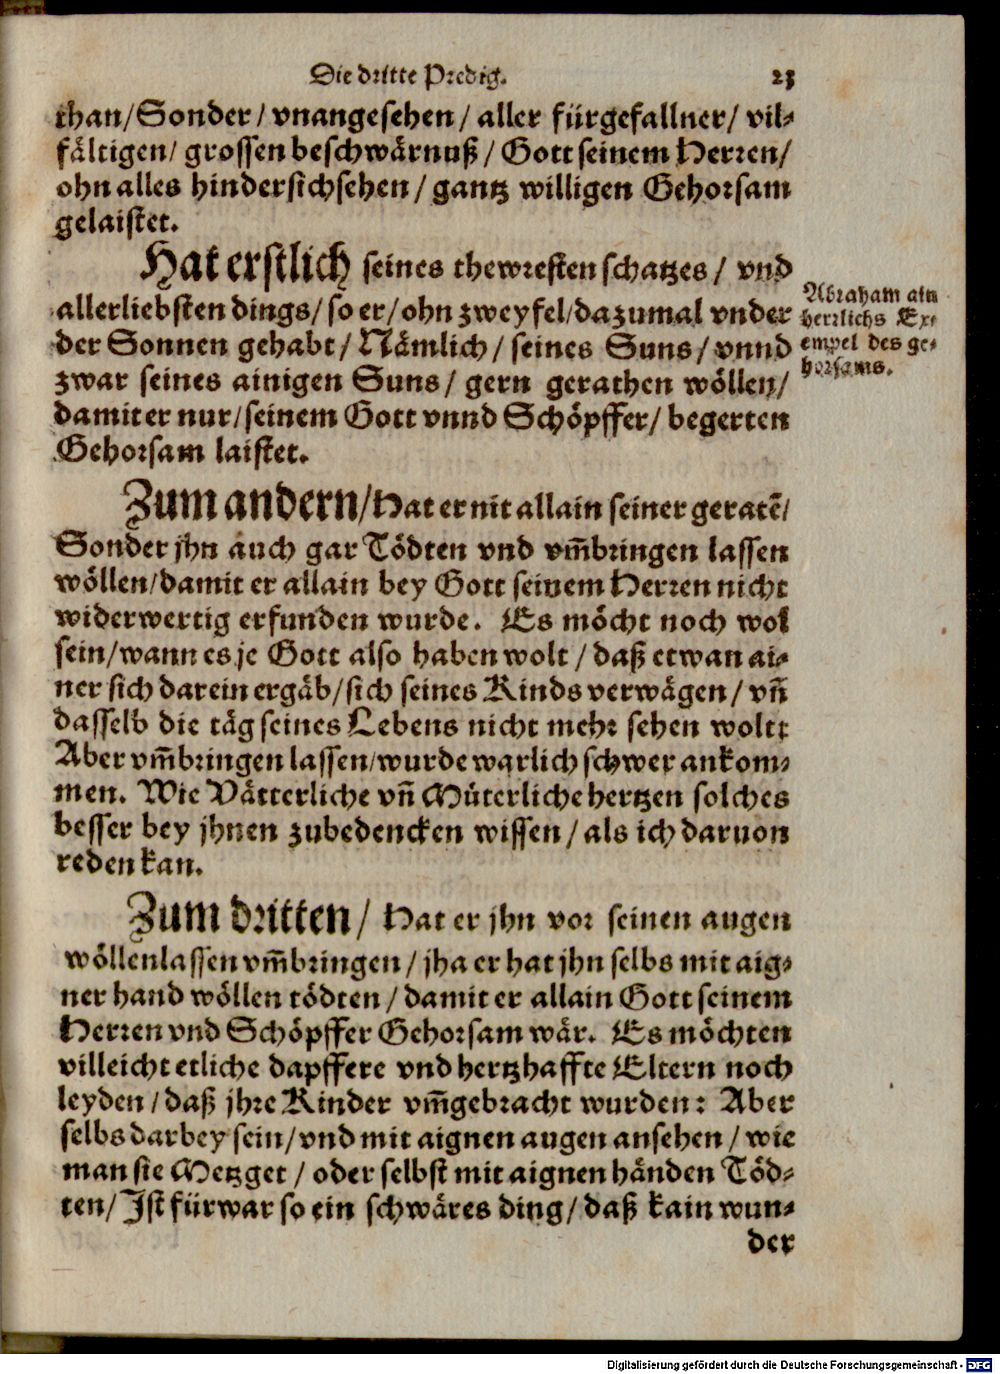 Die dritte Predig. 23
than/Sonder/vnangesehen/aller fürgefallner/vil-
fältigen/grossen beschwärnuß/Gott seinem Herren/
ohn alles hindersichsehen/gantz willigen Gehorsam
gelaistet.
Hat erstlich seines thewresten schatzes/vnd
allerliebsten dings/so er/ohn zweyfel/dazumal vnder
der Sonnen gehabt/Nämlich/seines Suns/vnnd
zwar seines ainigen Suns/gern gerathen wöllen/
damit er nur/seinem Gott vnnd Schöpffer/begerten
Gehorsam laistet.
Abraham ain
herrlichs Ex-
empel des ge-
horsams.
Zum andern/Hat er nit allain seiner geratē/
Sonder jhn auch gar Tödten vnd vm̄bringen lassen
wöllen/damit er allain bey Gott seinem Herren nicht
widerwertig erfunden wurde. Es möcht noch wol
sein/wann es je Gott also haben wolt/daß etwan ai-
ner sich darein ergäb/sich seines Kinds verwägen/vn̄
dasselb die täg seines Lebens nicht mehr sehen wolt:
Aber vm̄bringen lassen/wurde warlich schwer ankom-
men. Wie Vätterliche vn̄ Müterliche hertzen solches
besser bey jhnen zubedencken wissen/als ich daruon
reden kan.
Zum dritten/Hat er jhn vor seinen augen
wöllen lassen vm̄bringen/jha er hat jhn selbs mit aig-
ner hand wöllen tödten/damit er allain Gott seinem
Herren vnd Schöpffer Gehorsam wär. Es möchten
villeicht etliche dapffere vnd hertzhaffte Eltern noch
leyden/daß jhre Kinder vm̄gebracht wurden: Aber
selbs darbey sein/vnd mit aignen augen ansehen/wie
man sie Metzget/oder selbst mit aignen händen Töd-
ten/Ist fürwar so ein schwäres ding/daß kain wun-
der
Digitalisierung gefördert durch die Deutsche Forschungsgemeinschaft - DFG